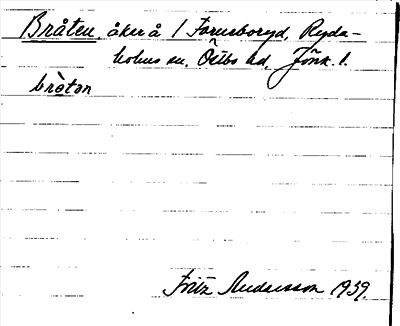 Bråten, åker å 1 Forusboryd, Ryda-
holms sn, Östbo hd, Jönk. l.
brò̀tən
Fritz Andersson 1939.